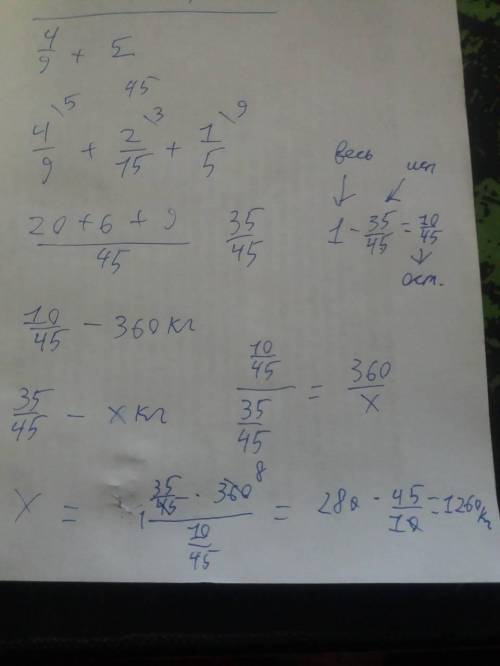 4/9 + Σ
45
4/9 \5 + 2/15 \3 + 1/5 \9
весь исп
20 + 6 + 9 / 45 35/45 1 - 35/45 = 10/45
ост.
10/45 - 360 кг
35/45 - x кг 10/45 / 35/45 = 360/x
x = 1 35/45 · 360 8 / 10/45 = 280 · 45/10 = 1260 кг